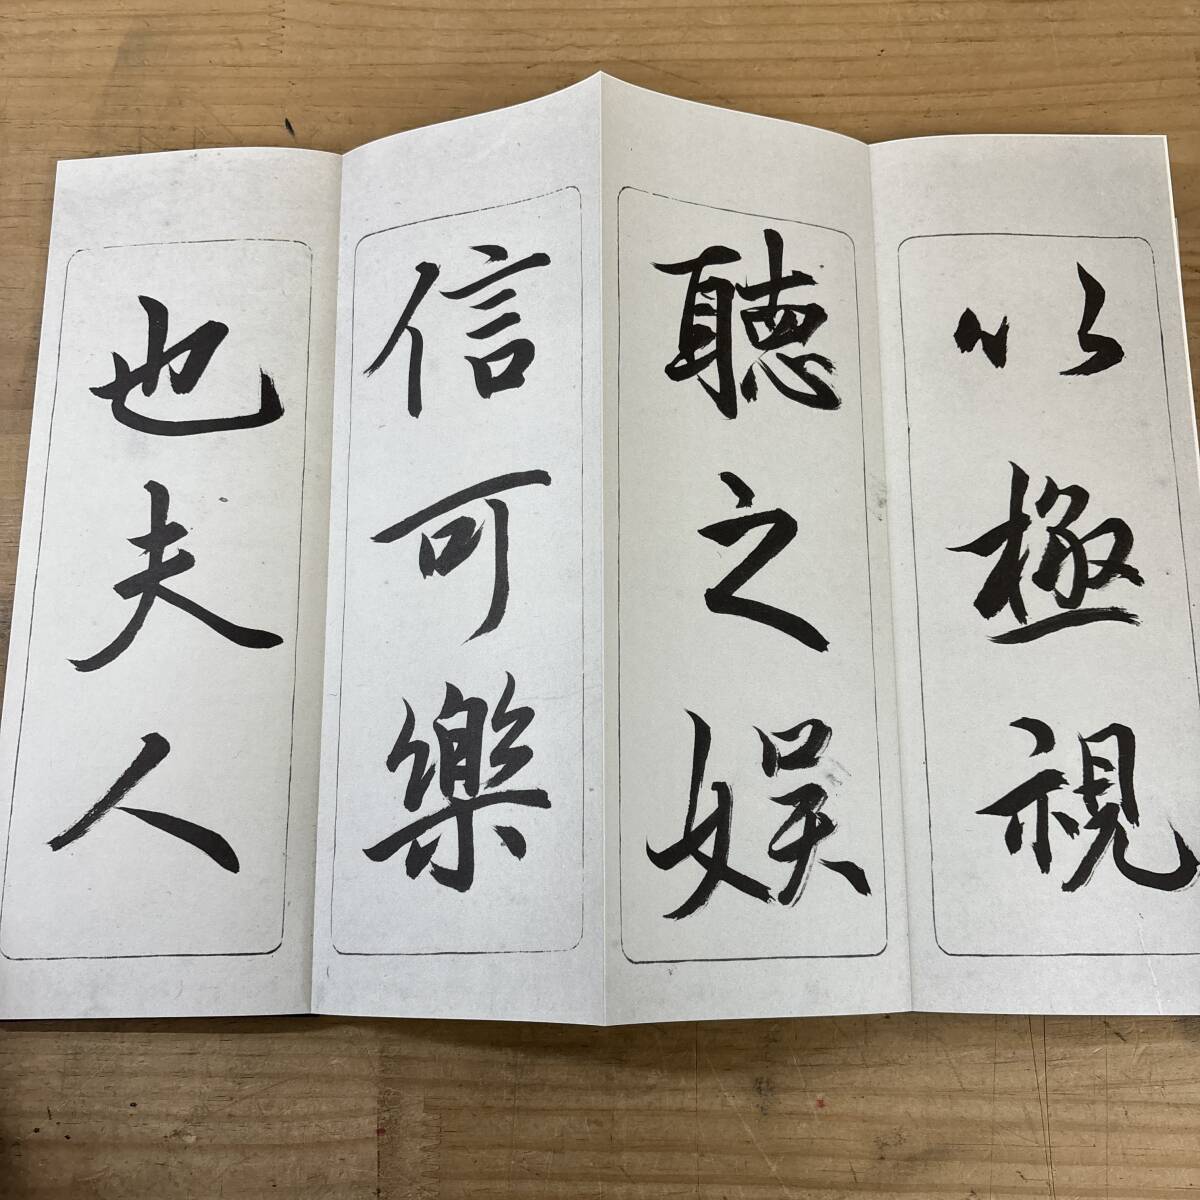 以極視
聽之娯
信可樂
也夫人